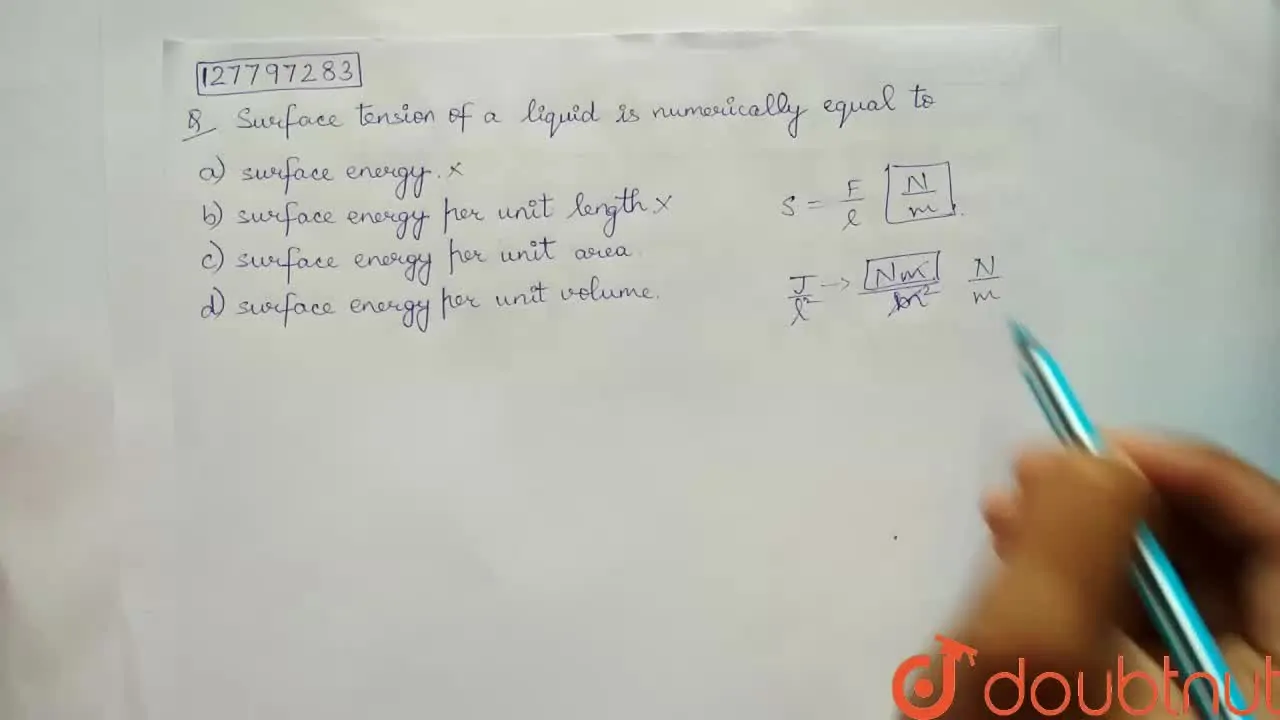 127797283
Q Surface tension of a liquid is numerically equal to
a) surface energy. x
b) surface energy per unit length x
c) surface energy per unit area.
d) surface energy per unit volume.
S = F/l N/m.
J/l² → Nm/m² N/m
doubtnut